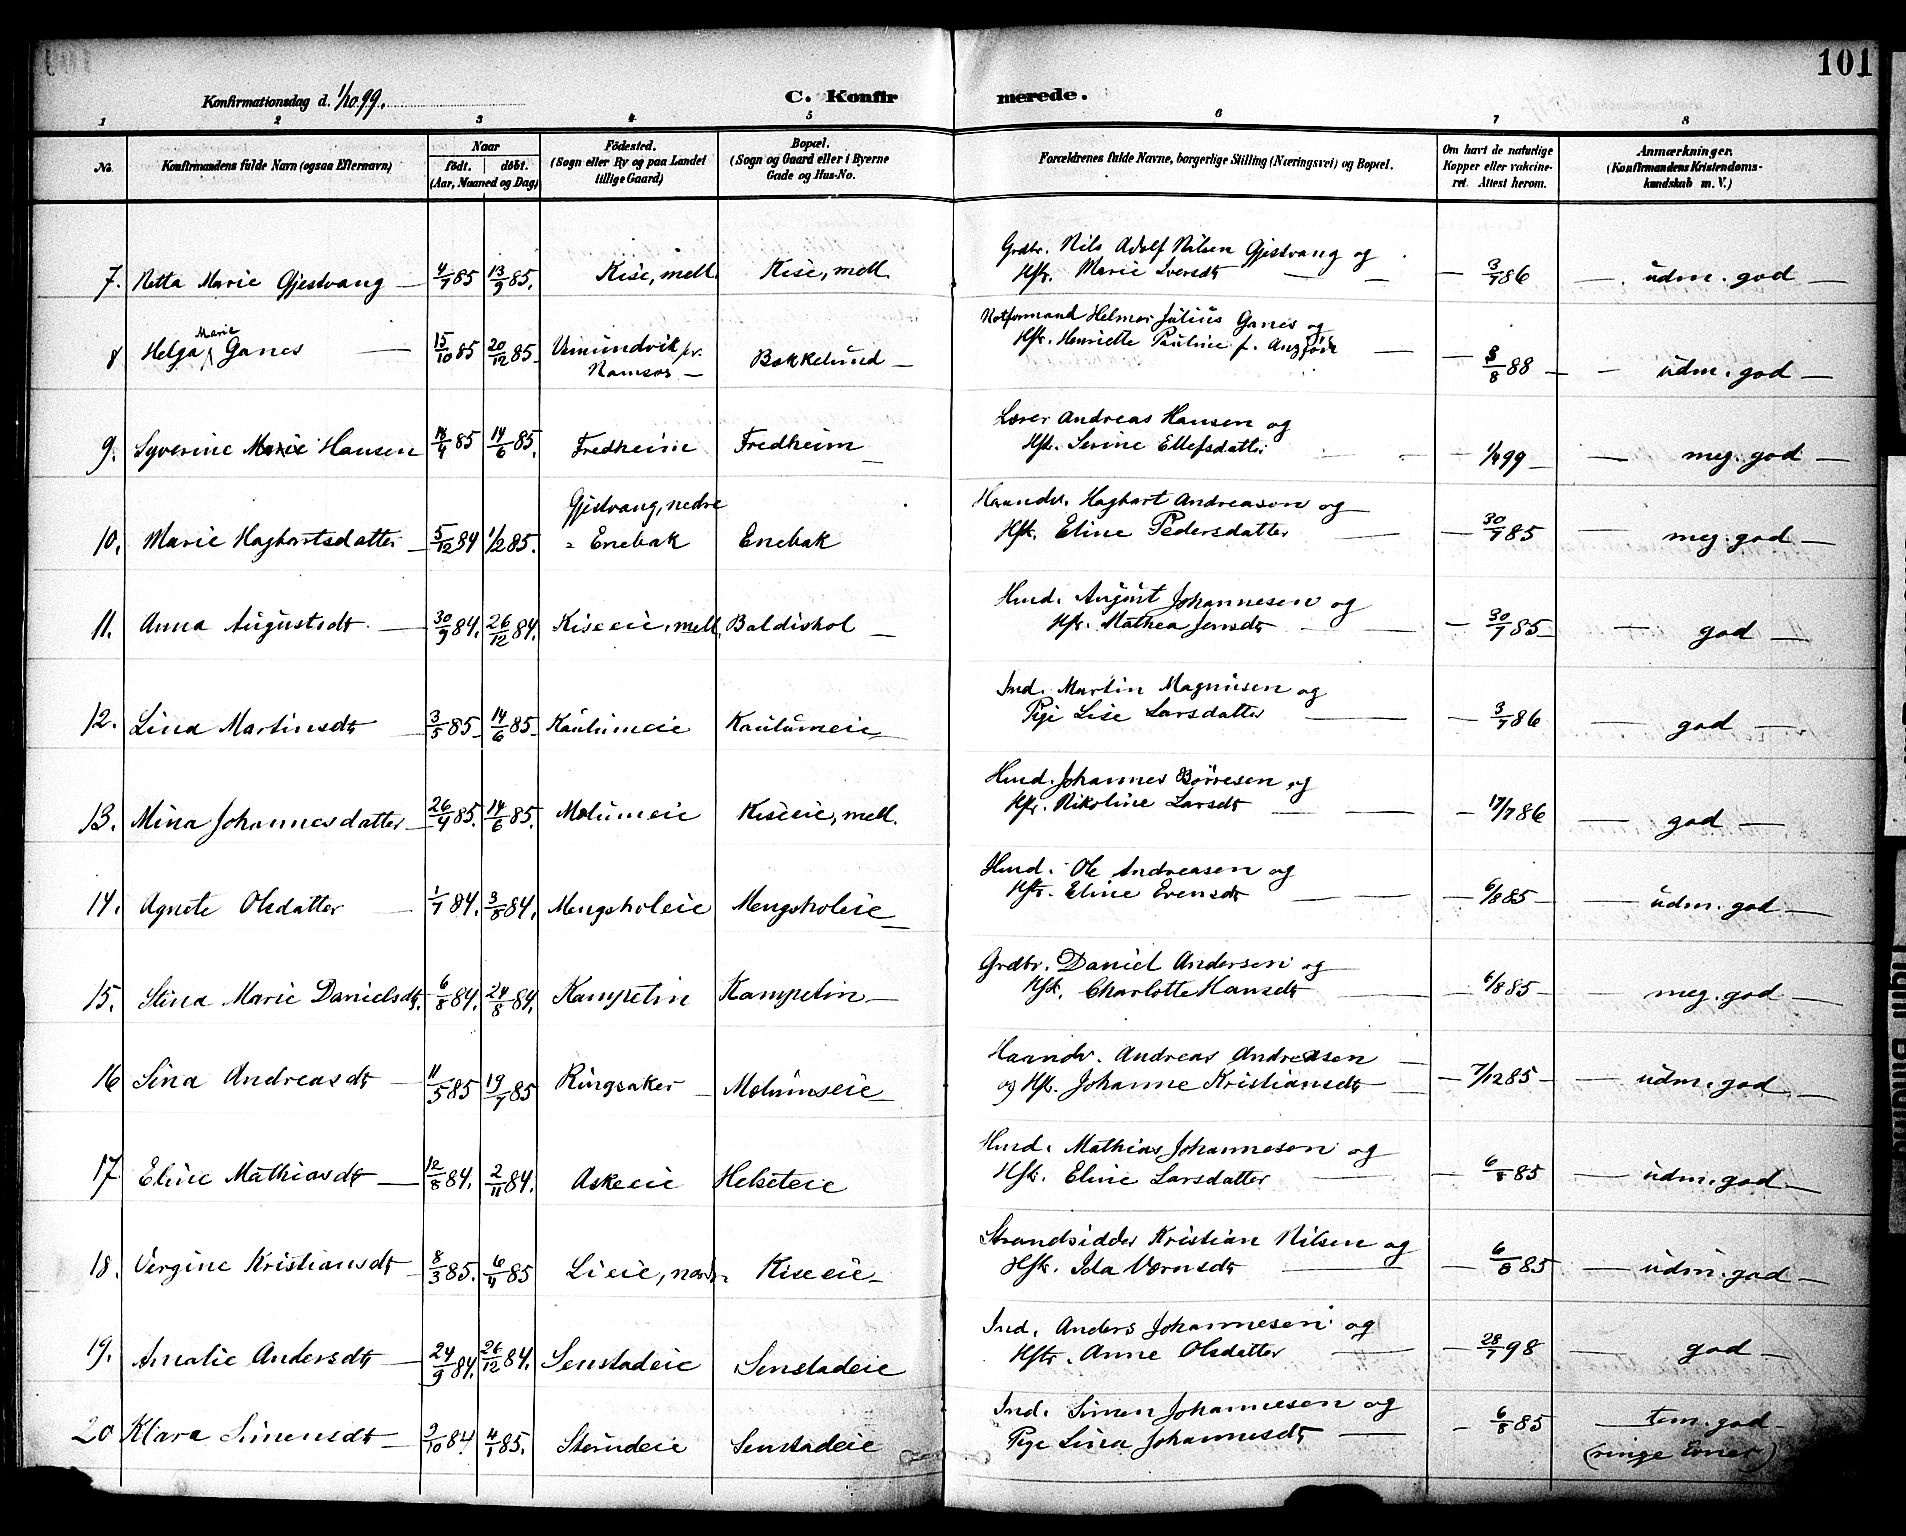 101
Konfirmationsdag d. 1/10 99.
C. Konfirmerede.
1 2 3 4 5 6 7 8
No.
Konfirmandens fulde Navn (ogsaa Efternavn)
Naar
født. døbt.
(Aar, Maaned og Dag)
Fødested.
(Sogn eller By og paa Landet
tillige Gaard)
Bopæl.
(Sogn og Gaard eller i Byerne
Gade og Hus-No.
Forældrenes fulde Navne, borgerlige Stilling (Næringsvei) og Bopæl.
Om havt de naturlige
Kopper eller vakcine-
ret. Attest herom.
Anmærkninger.
(Konfirmandens Kristendoms-
kundskab m. V.)
Grdbr. Nils Adolf Nilsen Gjestvang og
7. Netta Marie Gjestvang 4/7 85 13/9 85. Kise, mell. Kise, mell. Hfr. Marie Iversdt — 3/7 86 — udm. god —
Marie
8 Helga Ganes — 15/10 85 20/12 85 Vemundvik pr. Namsos — Bakkelund — Helmer Julius Ganes og
Hfr. Henriette Pauline f. — 8/8 88 — udm. god —
Lærer Andreas Hansen og
9. Syverine Marie Hansen 18/4 85 14/6 85. Fredheim Fredheim Hfr. Serine Ellefsdatter — 1/9 99 — meg. god —
Gjestvang, nedre Haandv. Hagbart Andreason og
10. Marie Hagbartsdatter 5/12 84 1/2 85. Enebak Enebak Hfr. Eline Pedersdatter — 30/7 85 — meg. god —
Hmd. August Johannesen og
11. Anna Augustsdt. — 30/9 84. 26/12 84. Kiseeie, mell. Baldishol — Hfr. Mathea Jensdt — 30/7 85 — god —
Ind. Martin Magnusen og
12. Lina Martinsdt 3/5 85 14/6 85 Kautumeie Kautumeie Pige Lise Larsdatter — 3/7 86 — god —
Hmd. Johannes Børresen og
13. Mina Johannesdatter 26/4 85. 14/6 85. Molumeie Kiseeie, mell. Hfr. Nikoline Larsdt — 17/7 86 — god —
Hmd. Ole Andreasen og
14. Agnete Olsdatter — 1/7 84. 3/8 84. Mengsholeie Mengsholeie — Hfr. Eline Evensdt — 6/8 85 — udm. god —
Grdbr. Daniel Andersen og
15. Stina Marie Danielsdt. 6/8 84. 24/8 84. Kampetin Kampetin — Hfr. Charlotte Hansdt — 6/8 85 — meg. god —
Haandv. Andreas Andreasen —
16 Sina Andreasdt — 11/5 85 19/7 85 Ringsaker — Molumseie — og Hfr. Johanne Kristiansdt — 7/12 85 — udm. god —
Hmd. Mathias Johannesen og
17. Eline Mathiasdt — 12/8 84. 2/11 84. Askeeie Helseteie Hfr. Eline Larsdatter — 6/8 85 — udm. god —
Strandsidder Kristian Nilsen og
18. Vergine Kristiansdt 8/3 85. 6/4 85 Lieie, nord. Kiseeie — Hfr. Ida — 6/8 85 — udm. god —
Ind. Anders Johannesen og
19. Amalie Andersdt — 24/9 84. 26/12 84. Senstadeie Senstadeie Hfr. Anne Olsdatter — 28/7 98 — god —
Ind. Simen Johannesen og
20 Klara Simensdt — 9/10 84. 4/1 85. Senstadeie Pige Lina Johannesdt — 6/8 85 — tem. god —
(ringe Evner)